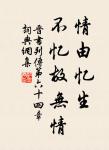 情由忆生
不忆故無情
晉书列傳第六十四章
詞典網集